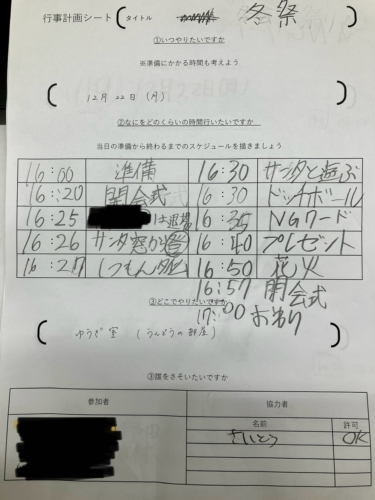 行事計画シート ( タイトル 冬祭 )
①いつやりたいですか
※準備にかかる時間も考えよう
( 12月 22日 (月) )
②なにをどのくらいの時間行いたいですか
当日の準備から終わるまでのスケジュールを描きましょう
16:00 準備 16:30 サンタと遊ぶ
16:20 開会式 16:30 ドッチボール
16:25 は退場 16:35 NGワード
16:26 サンタ 16:40 プレゼント
16:27 しつもんタイム 16:50 花火
16:57 閉会式
17:00 おわり
③どこでやりたいですか
( ゆうぎ室 (うんどうの部屋) )
③誰をさそいたいですか
参加者 協力者
名前 許可
さいとう OK